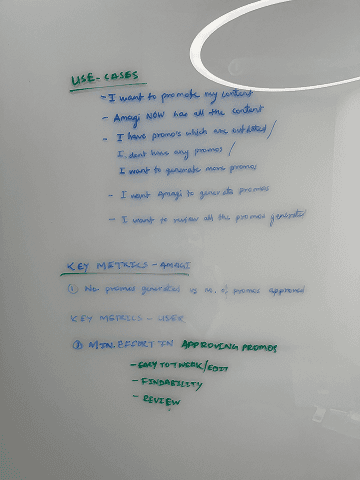 USE-CASES
- I want to promote my content
- Amagi NOW has all the content
- I have promo's which are outdated /
I dont have any promos /
I want to generate more promos
- I want Amagi to generate promos
- I want to review all the promos generated
KEY METRICS - AMAGI
① No promos generated vs no. of promos approved
KEY METRICS - USER
① MIN. EFFORT IN APPROVING PROMOS
- EASY TO TWEAK/EDIT
- FINDABILITY
- REVIEW